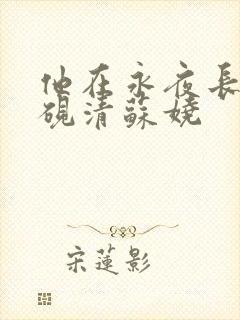 他在永夜長
硯清蘇嬈
宋蓮影